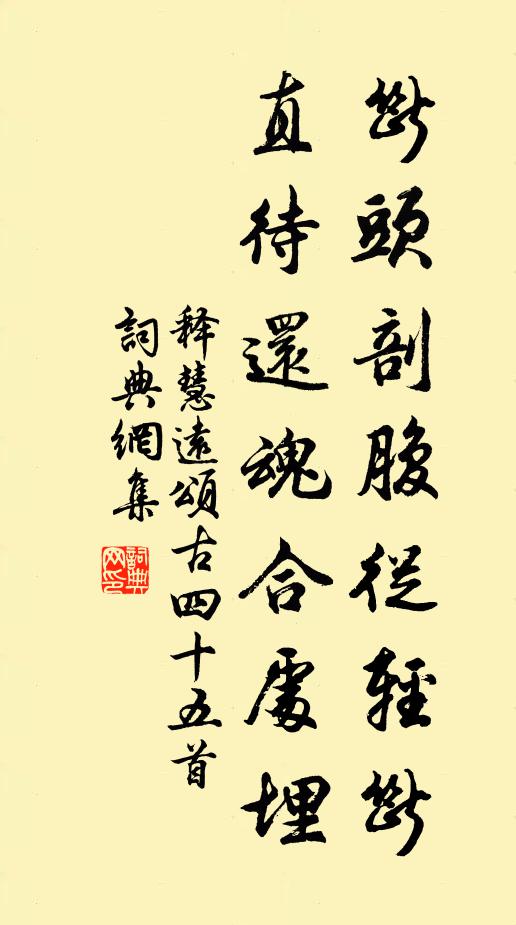 斷頭剖腹從輕斷
直待還魂合處埋
释慧遠頌古四十五首
詞典網集
詞典网印